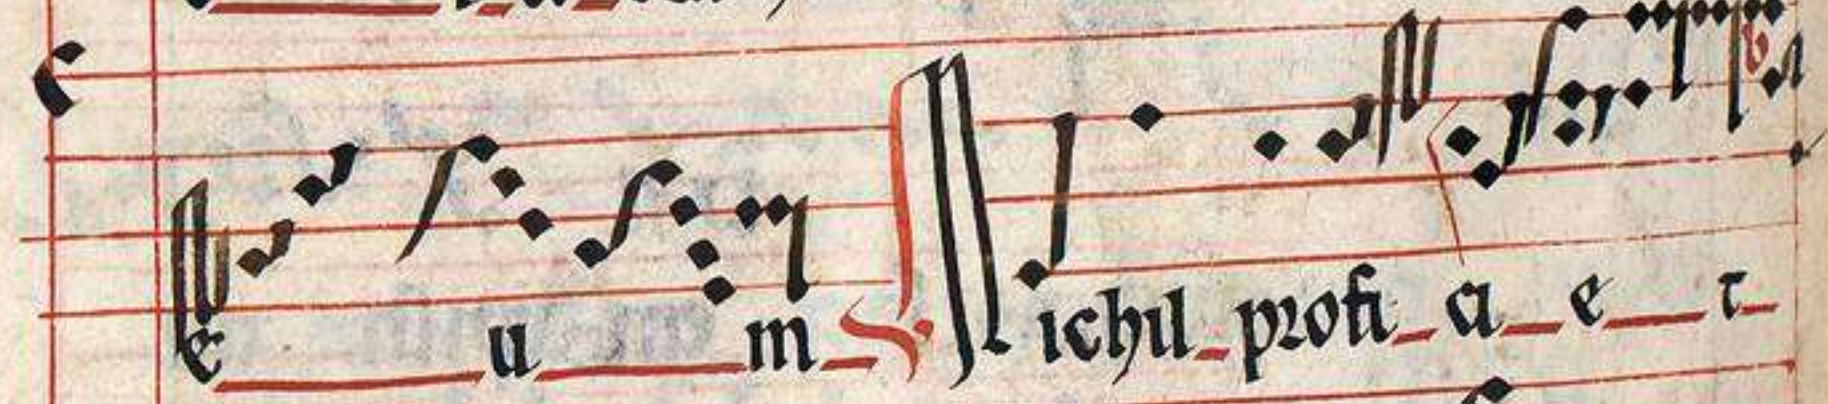 e u m Nichil profi ci e t